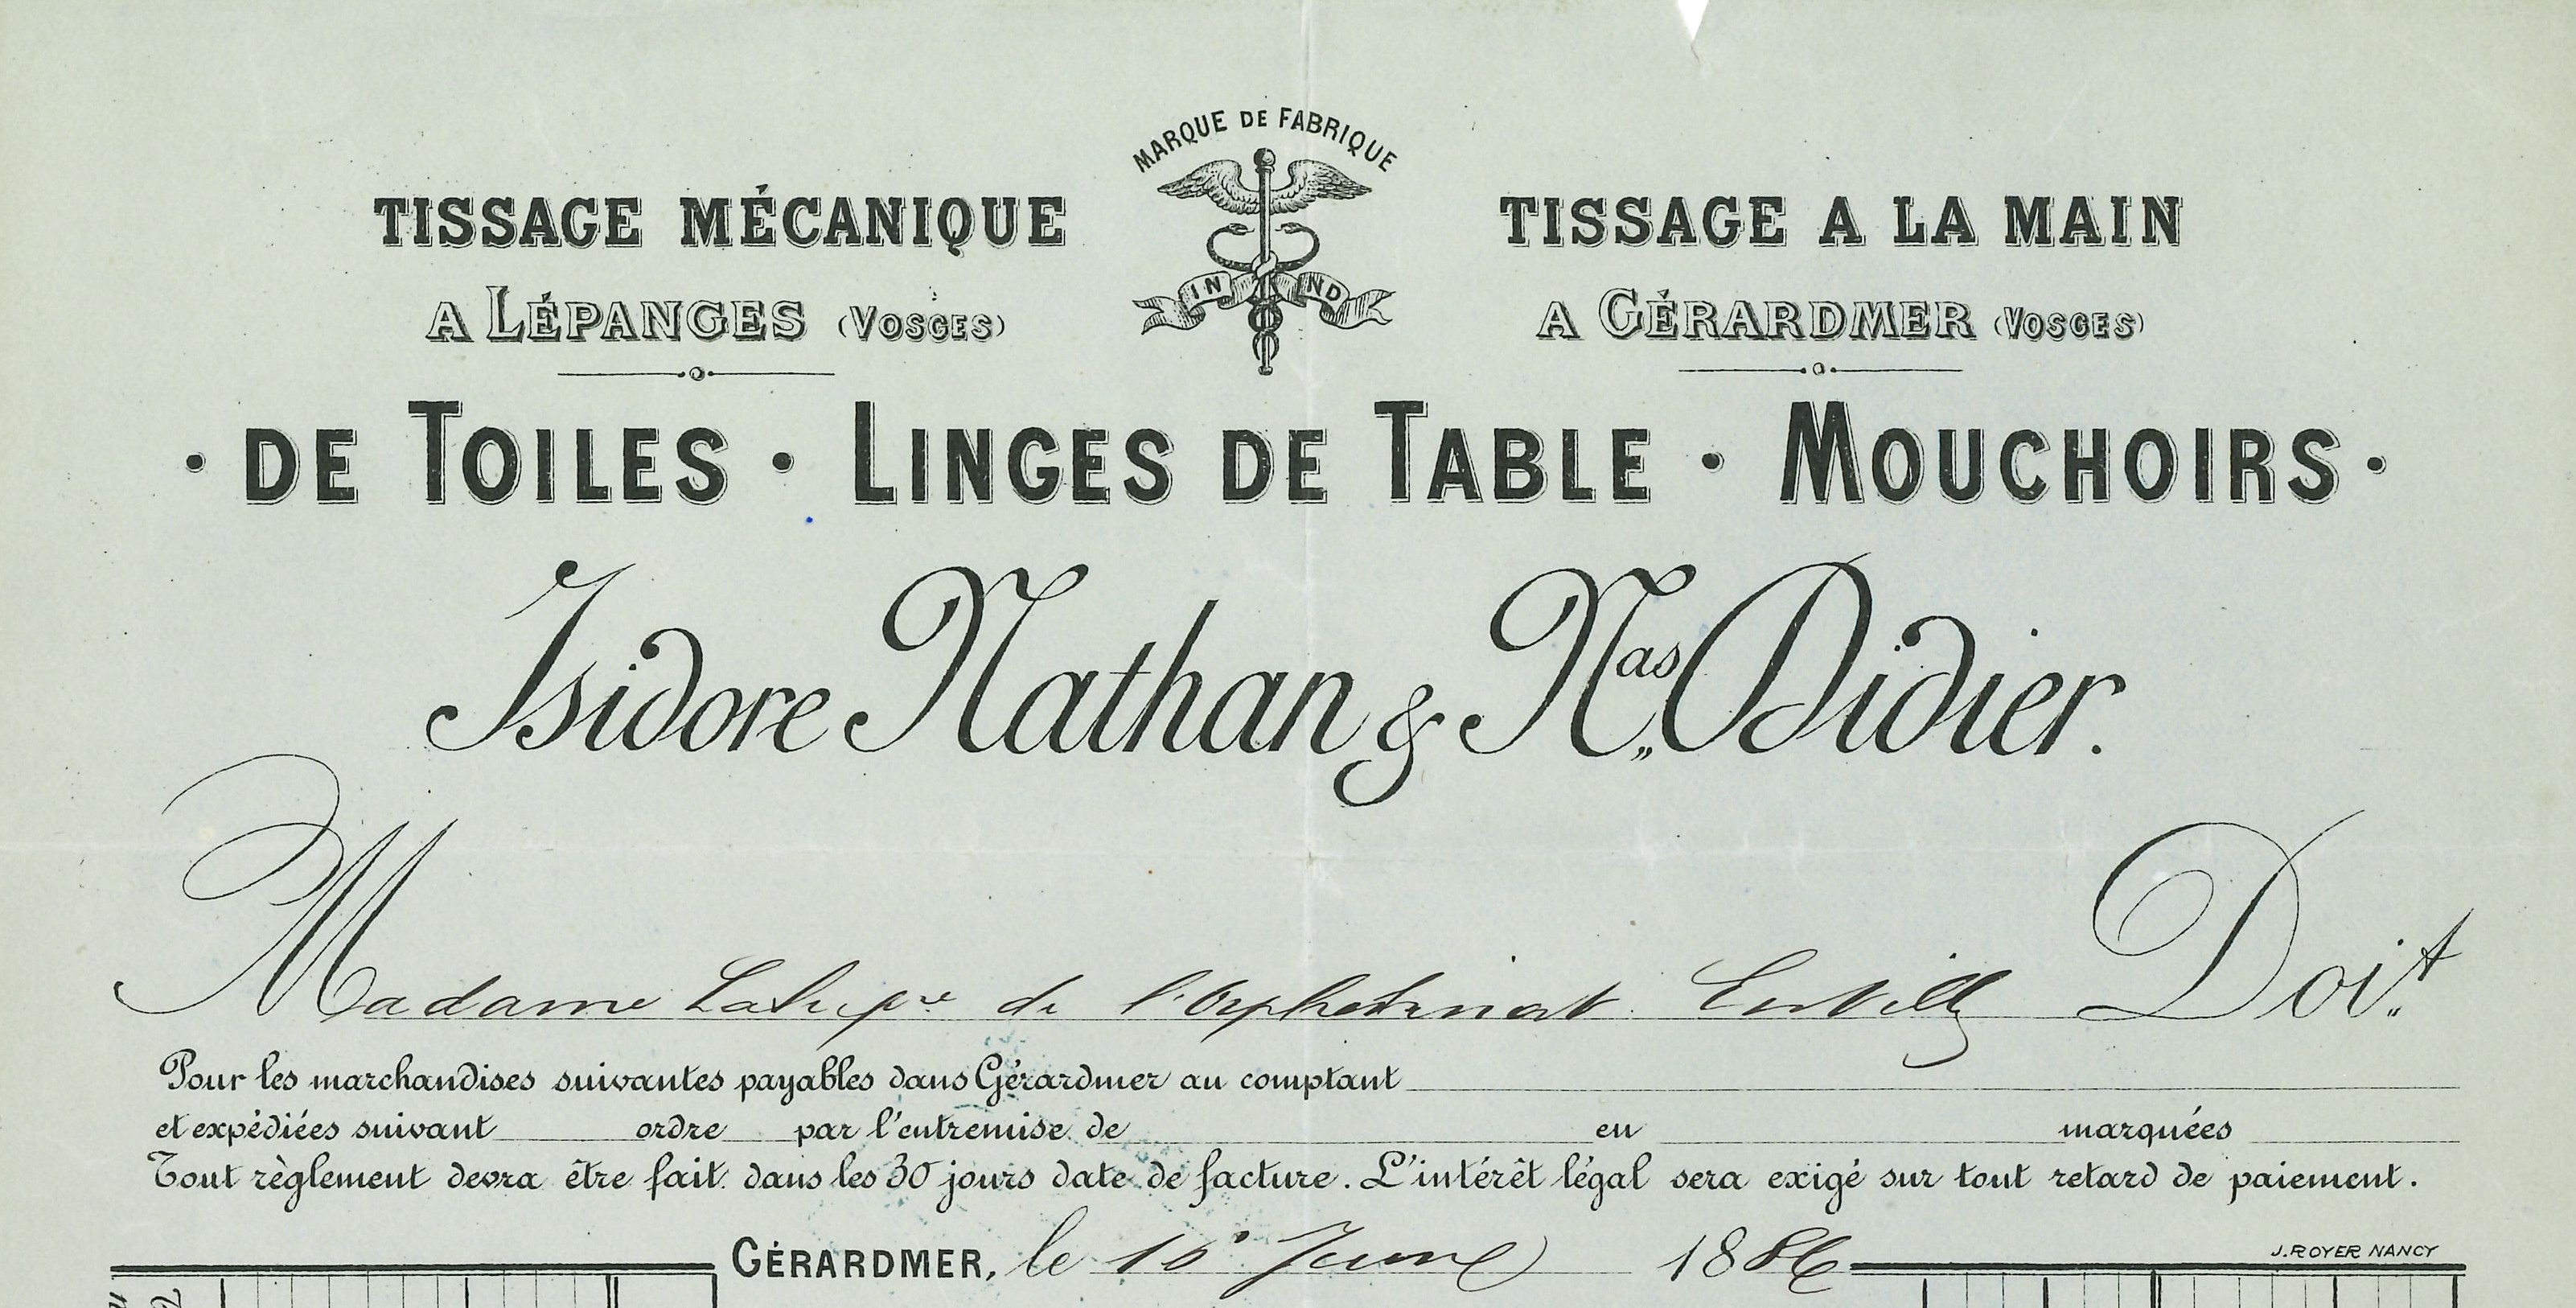 MARQUE DE FABRIQUE
IN ND
TISSAGE MÉCANIQUE
A LÉPANGES (VOSGES)
TISSAGE A LA MAIN
A GÉRARDMER (VOSGES)
· DE TOILES · LINGES DE TABLE · MOUCHOIRS ·
Isidore Nathan & Nas Didier.
Madame de l'Orphelinat Doit
Pour les marchandises suivantes payables dans Gérardmer au comptant
et expédiées suivant ordre par l'entremise de en marquées
Tout règlement devra être fait dans les 30 jours date de facture. L'intérêt légal sera exigé sur tout retard de paiement.
GÉRARDMER, le 1886
J. ROYER NANCY